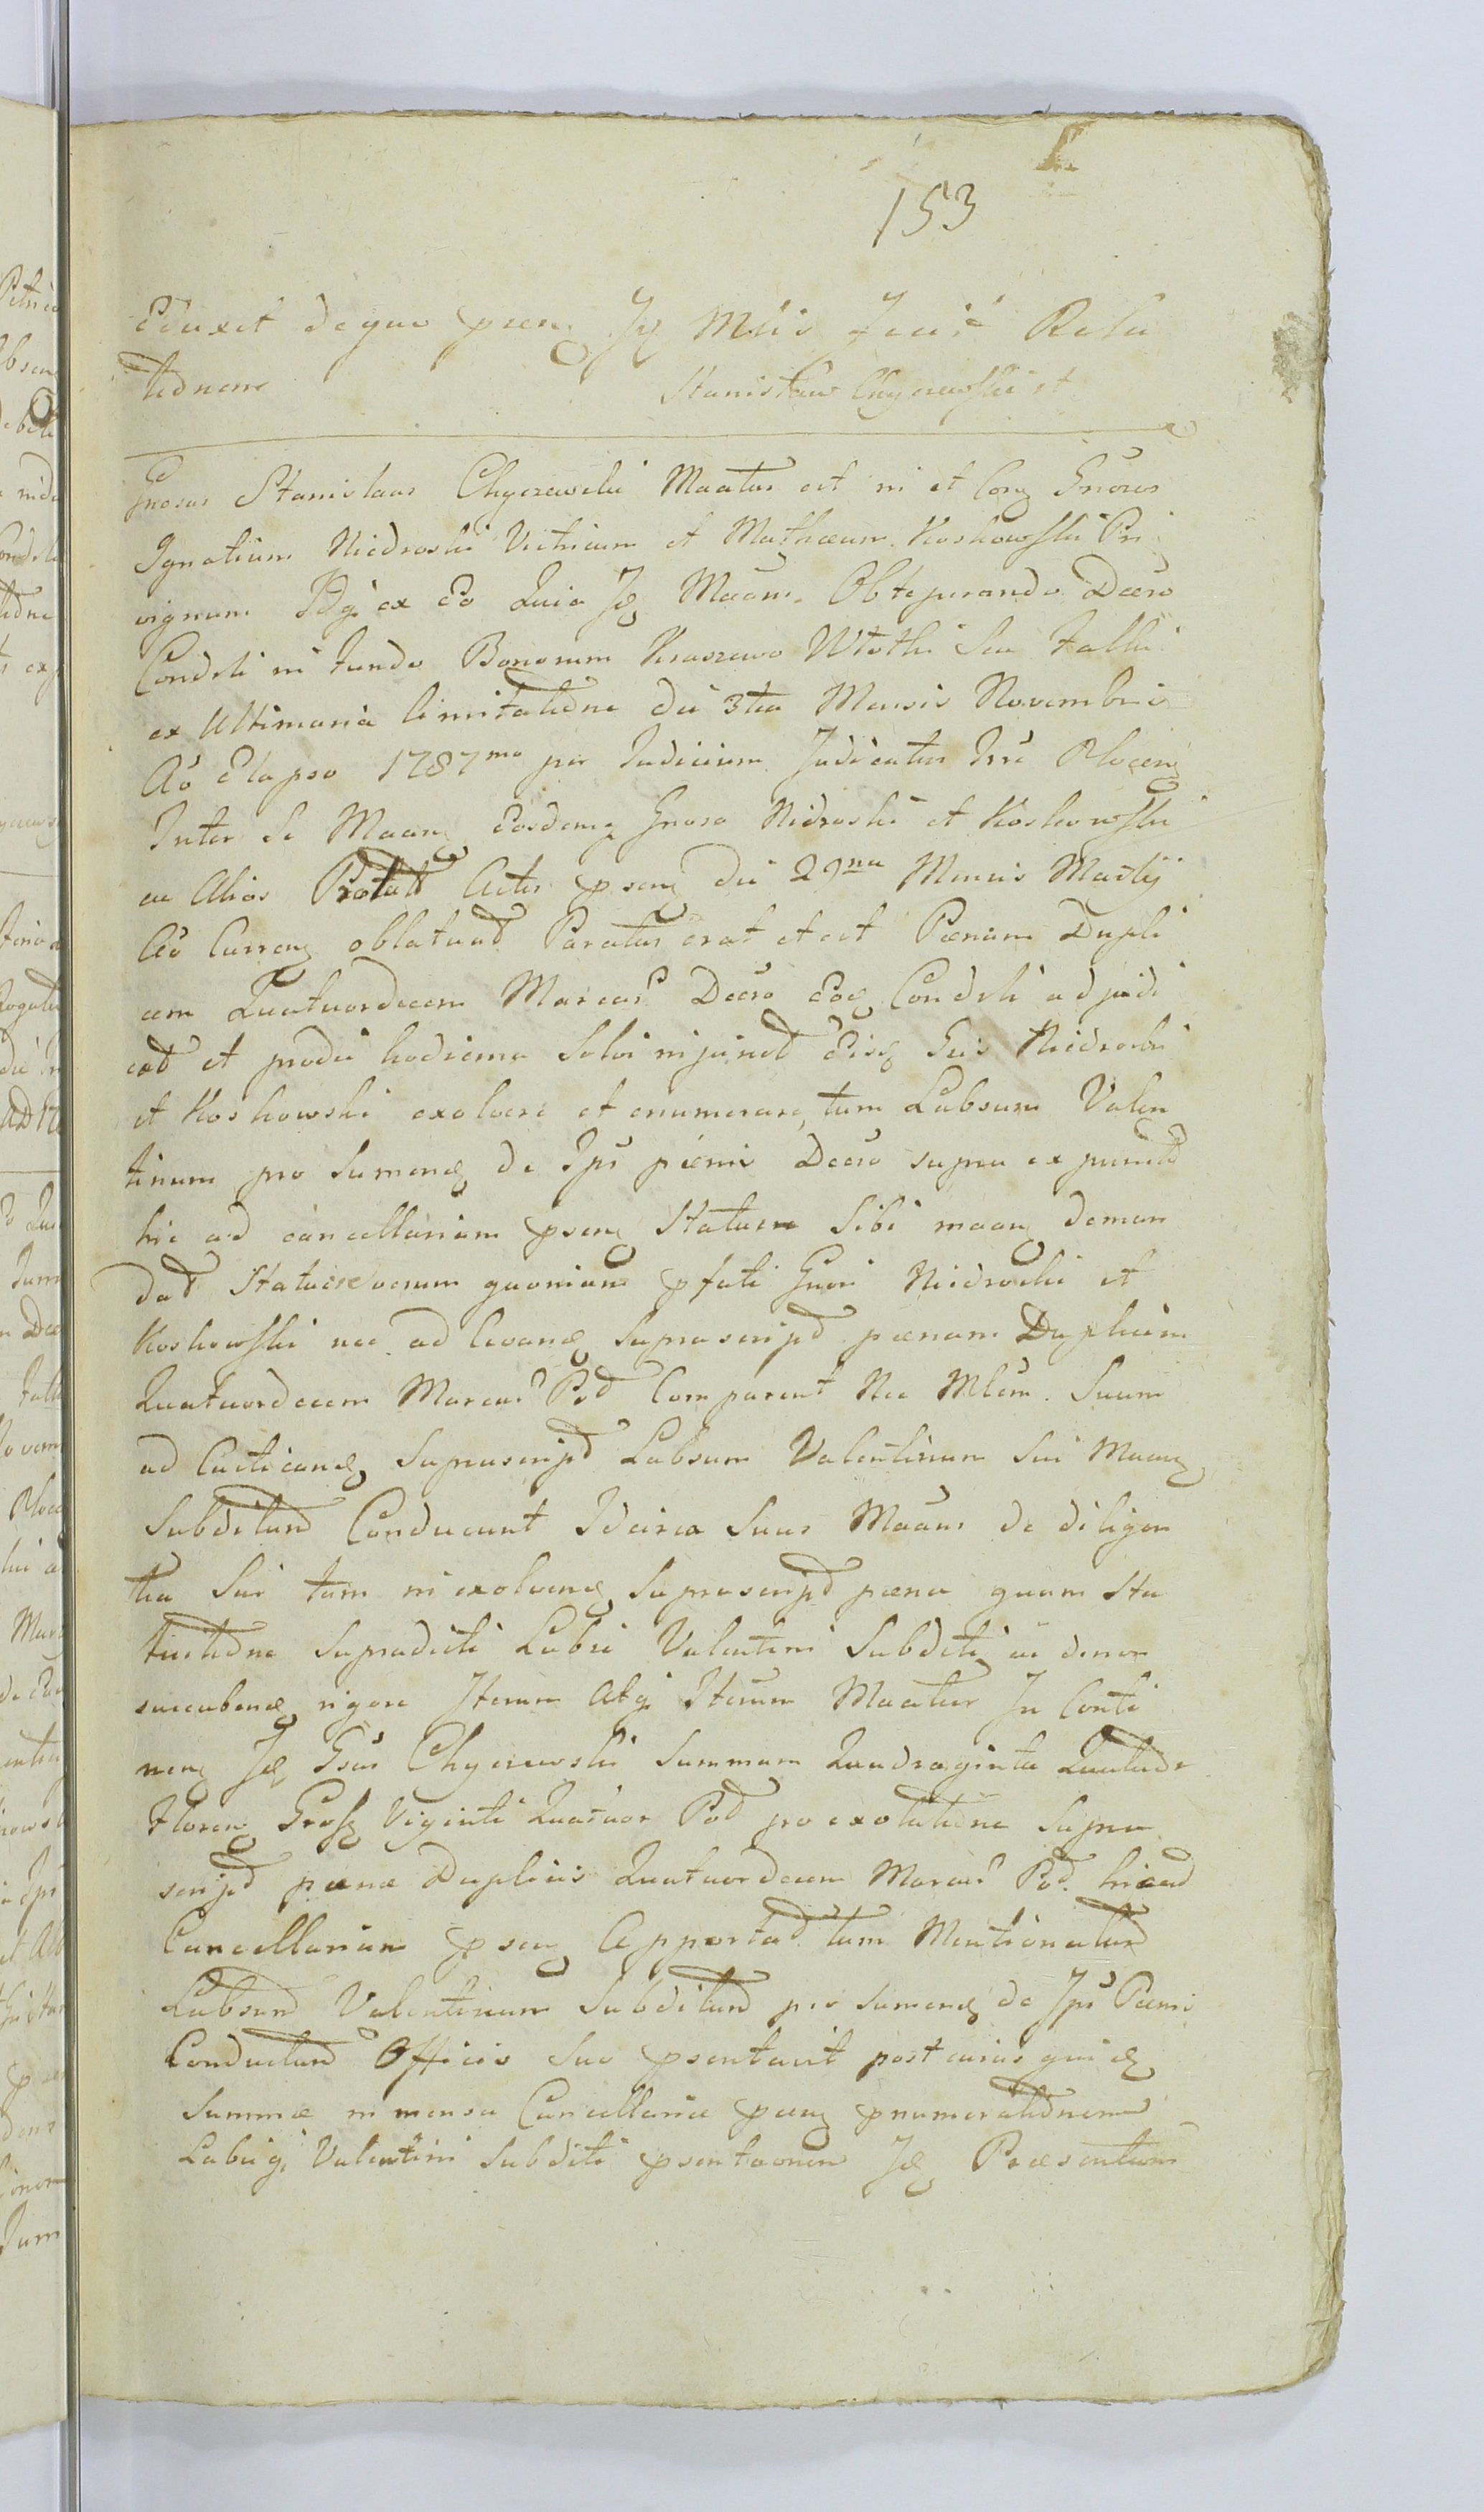 153
Eduxit de quo præng Jg Mtis fecit Rela
tidnem Stanisław Chyczewski
Gnosus Stanislaus Chyczewski Maatus est in et Cong Gnosos
Ignatium Niedroski Vitricum et Mathæum Koskowski Pri
vignum Idq ex Eo Quia Jg Maans Obteperando Decro
Condsli in fundo Bonorum Kraszewo Witoski Seu Falki
ex Ultimaria limitatidne die 3tia Mensis Novembris
Ao Elapso 1787mo per Judicium Judicatus Trrê Plocen
Inter Se Maang Eosdemq Gnoso Niedroski et Koskowski
ac Alios Prolatt Actis pseng die 29na Mensis Martij
Ao Curreng oblatuad Paratus erat et est Pœnam Dupli
cem Quatuordecem Marcar Decro Eog Condsli adjudi
cad et prodie hodierna Solvi injunctd Eisg Guis Niedroski
et Koskowski exolvere et enumerare, tum Labsum Valen
tinum pro Sumeng de Ipso pœnis Decro supra expressd
hic ad cancellariam pseng Statuere Sibi maang deman
dad Statuere verum quoniam pfati Gnosi Niedroski et
Koskowski nec ad levang suprascripd pœnam Duplicem
Quatuordecem Marcar Pod Comparent Nec Mlêm Suum
ad Casticang Suprascripd Labsum Valentinum Sui Maang
Subditund Conducunt Idcirco Suus Maans de diligen
tia Sui tam in exolveng Suprascripd pœna quam Sta
tuitidne Supradicti Labsi Valentini Subditi ac
succubeng rigore Iterum Atq Iterum Maatur In Conti
neng Jg Gsus Chyczewski Summam Quadraginta Quatuor
Floreng Grosg Viginti Quatuor Pod pro exolutidne Supra
scripd pœnæ Duplicis Quatuordecem Marcar Pod hicad
Cancellariam pseng Apportad tum Mentionatund
Labsund Valentinum Subditund pro sumeng de Ipso Pœnis
Conductund Officio Suo psentavit post cuius quidg
Summæ in mensa Cancellariæ pseng pnumeratidnem
Labsiq Valentini Subditi psentaonem Jg Præsentium